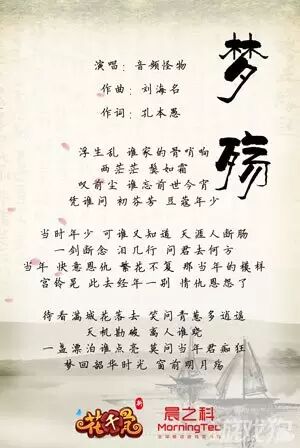 梦殇
演唱：音频怪物
作曲：刘海名
作词：孔本愚
浮生乱 谁家的骨哨响
两茫茫 鬓如霜
叹前尘 谁忘前世今宵
凭谁问 初芬芳 豆蔻年少
当时年少 可谁又知道 天涯人断肠
一剑断念 泪几行 问君去何方
当年 快意恩仇 繁花不复 那当年的模样
宫铃晃 此去经年一别 情仇恩怨了
待看满城花落去 笑问青葱多逍遥
天机勘破 离人谁晓
一盏漂泊谁点亮 莫问当年君痴狂
梦回韶华时光 窗前明月殇
新
花千骨
晨之科
MorningTec